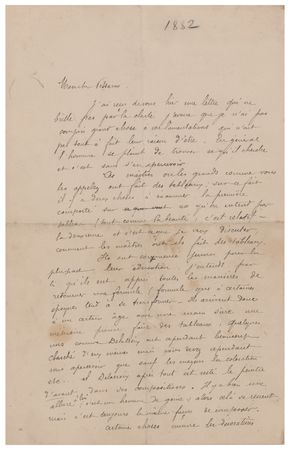 1882
Mon cher Pissarro
J'ai reçu de vous hier une lettre qui ne
brille pas par la clarté j'avoue que je n'ai pas
compris grand chose à vos lamentations qui n'ont
pas tout à fait leur raison d'être. En général
l'homme se plaint de trouver ce qu'il cherche
et c'est sans s'en apercevoir
Les maîtres ou les grands comme vous
les appelez ont fait des tableaux, sur ce fait
il y a deux choses à examiner la première
comporte sur ce qu'on entend par
tableau (tout comme la beauté) c'est relatif
la deuxième et c'est que je veux discuter,
comment les maîtres ont-ils fait des tableaux
Ils ont commencé jeunes pour la
plupart leur éducation j'entends par
là qu'ils ont appris toutes les manières de
retourner une formule (formule que à certaines
époques tend à se transformer. Ils arrivent donc
à un certain âge avec une main sûre une
mémoire pour faire des tableaux. Quelques
uns comme Delacroix ont cependant beaucoup
cherché d'eux mêmes mais vous devez cependant
vous apercevoir que sauf les maçons la collection
etc. .. Delacroix après tout est resté le peintre
d'avant dans ses compositions. Il y a bien une
allure c'est un homme de génie alors cela se ressent
mais c'est toujours la même façon de composer.
Certaines choses comme les décorations